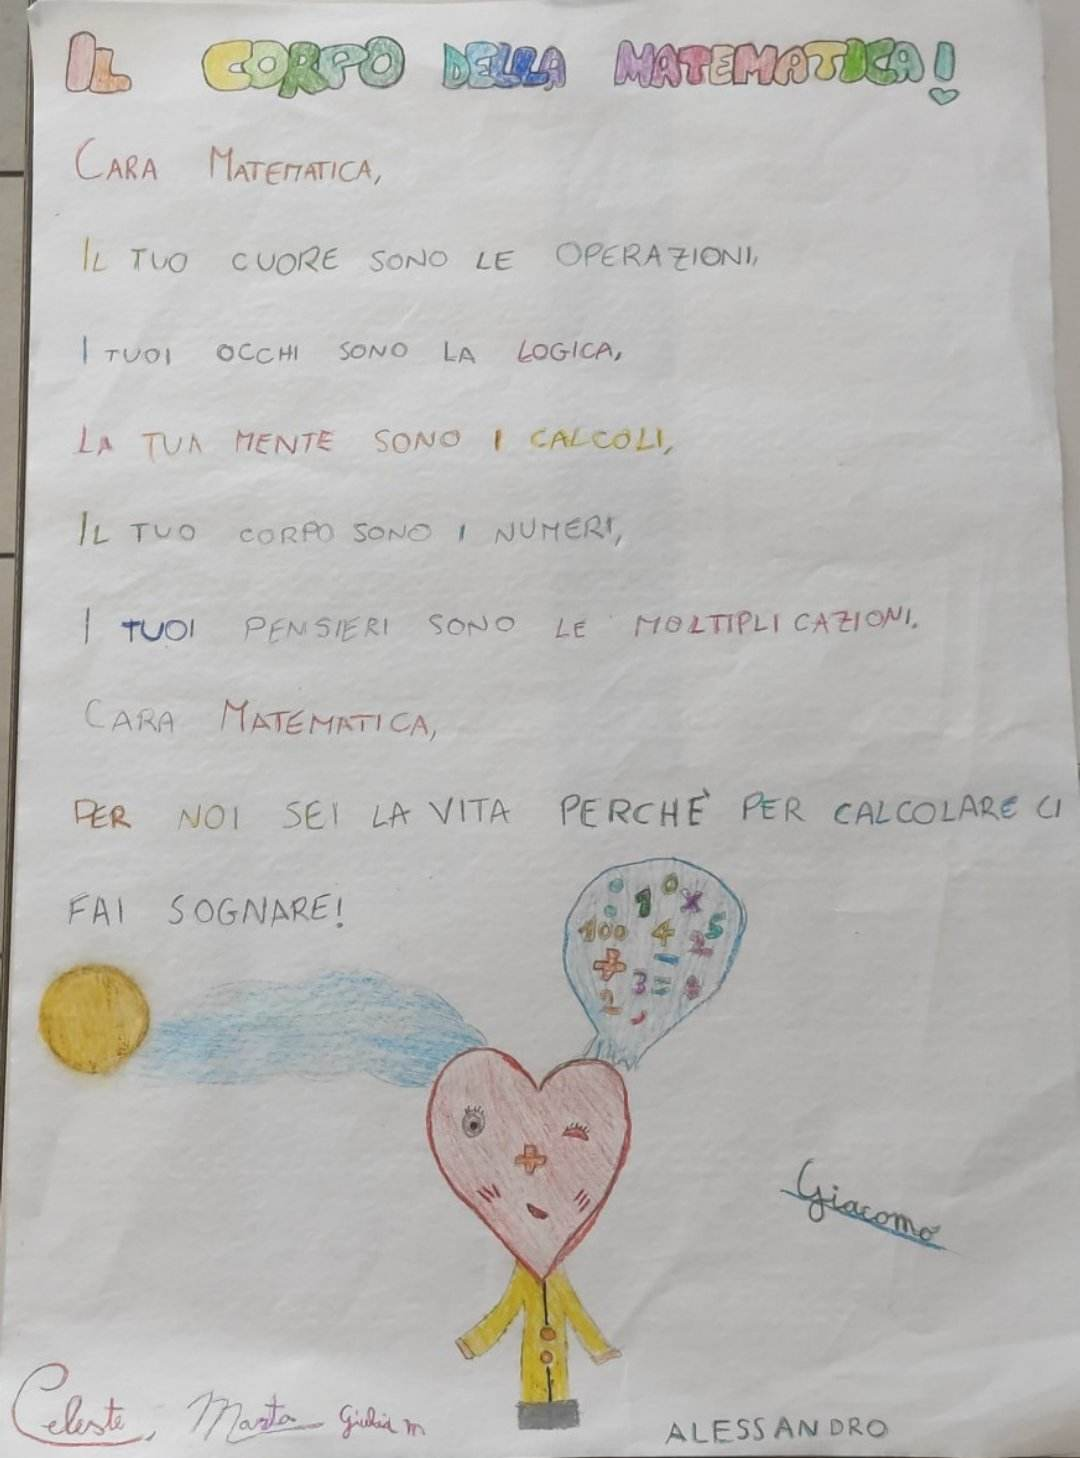 IL CORPO DELLA MATEMATICA!
CARA MATEMATICA,
IL TUO CUORE SONO LE OPERAZIONI,
I TUOI OCCHI SONO LA LOGICA,
LA TUA MENTE SONO I CALCOLI,
IL TUO CORPO SONO I NUMERI,
I TUOI PENSIERI SONO LE MOLTIPLICAZIONI.
CARA MATEMATICA,
PER NOI SEI LA VITA PERCHÈ PER CALCOLARE CI
FAI SOGNARE!
: 1 0 x
100 4 2 5
+ - 
2 3 = 8
,
Giacomo
Celeste, Marta Giulia m
ALESSANDRO